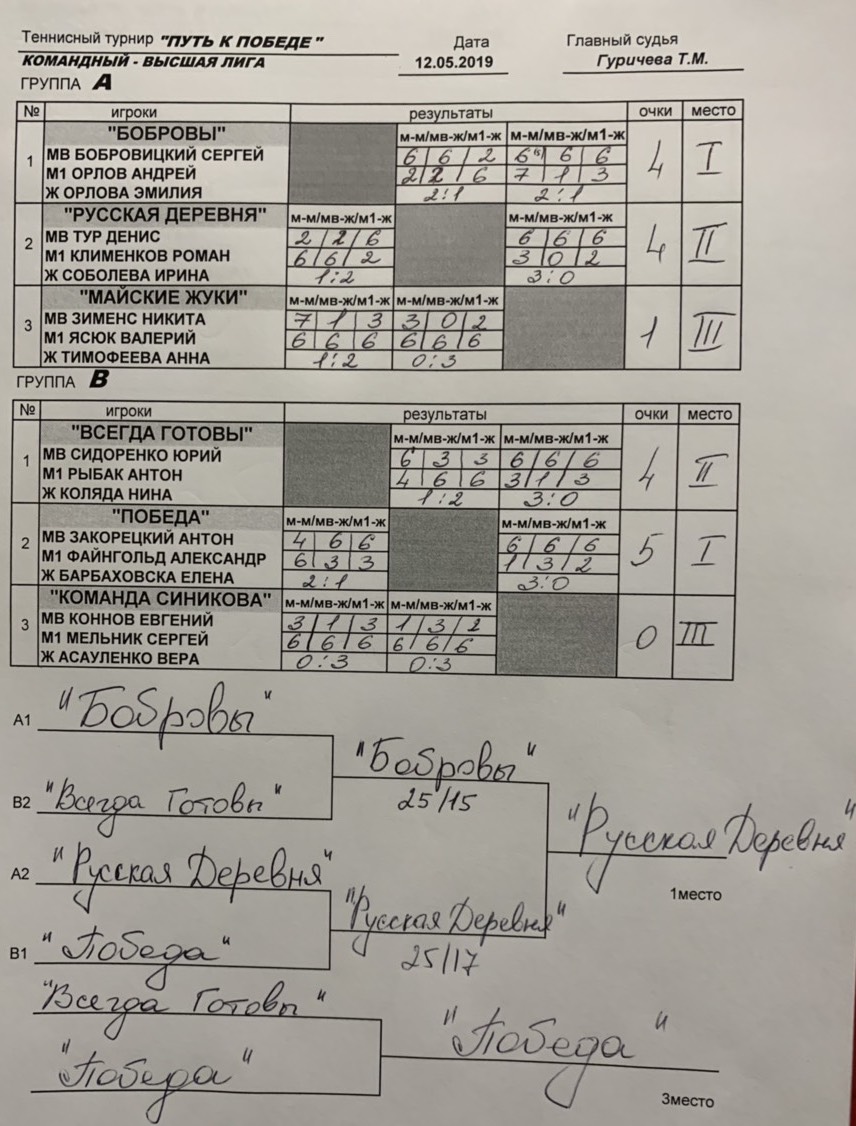 Теннисный турнир "ПУТЬ К ПОБЕДЕ" Дата Главный судья
КОМАНДНЫЙ - ВЫСШАЯ ЛИГА 12.05.2019 Гуричева Т.М.
ГРУППА А
№ игроки результаты очки место
"БОБРОВЫ" м-м/мв-ж/м1-ж м-м/мв-ж/м1-ж
1 МВ БОБРОВИЦКИЙ СЕРГЕЙ 6 6 2 6 6 6 4 I
М1 ОРЛОВ АНДРЕЙ 2 2 6 7 1 3
Ж ОРЛОВА ЭМИЛИЯ 2:1 2:1
"РУССКАЯ ДЕРЕВНЯ" м-м/мв-ж/м1-ж м-м/мв-ж/м1-ж
2 МВ ТУР ДЕНИС 2 2 6 6 6 6 4 II
М1 КЛИМЕНКОВ РОМАН 6 6 2 3 0 2
Ж СОБОЛЕВА ИРИНА 1:2 3:0
"МАЙСКИЕ ЖУКИ" м-м/мв-ж/м1-ж м-м/мв-ж/м1-ж
3 МВ ЗИМЕНС НИКИТА 7 1 3 3 0 2 1 III
М1 ЯСЮК ВАЛЕРИЙ 6 6 6 6 6 6
Ж ТИМОФЕЕВА АННА 1:2 0:3
ГРУППА В
№ игроки результаты очки место
"ВСЕГДА ГОТОВЫ" м-м/мв-ж/м1-ж м-м/мв-ж/м1-ж
1 МВ СИДОРЕНКО ЮРИЙ 6 3 3 6 6 6 4 II
М1 РЫБАК АНТОН 4 6 6 3 1 3
Ж КОЛЯДА НИНА 1:2 3:0
"ПОБЕДА" м-м/мв-ж/м1-ж м-м/мв-ж/м1-ж
2 МВ ЗАКОРЕЦКИЙ АНТОН 4 6 6 6 6 6 5 I
М1 ФАЙНГОЛЬД АЛЕКСАНДР 6 3 3 1 3 2
Ж БАРБАХОВСКА ЕЛЕНА 2:1 3:0
"КОМАНДА СИНИКОВА" м-м/мв-ж/м1-ж м-м/мв-ж/м1-ж
3 МВ КОННОВ ЕВГЕНИЙ 3 1 3 1 3 2 0 III
М1 МЕЛЬНИК СЕРГЕЙ 6 6 6 6 6 6
Ж АСАУЛЕНКО ВЕРА 0:3 0:3
А1 "Бобровы"
"Бобровы"
В2 "Всегда Готовы" 25/15
"Русская Деревня"
А2 "Русская Деревня"
1место
"Русская Деревня"
В1 "Победа" 25/17
"Всегда Готовы"
"Победа"
"Победа"
3место